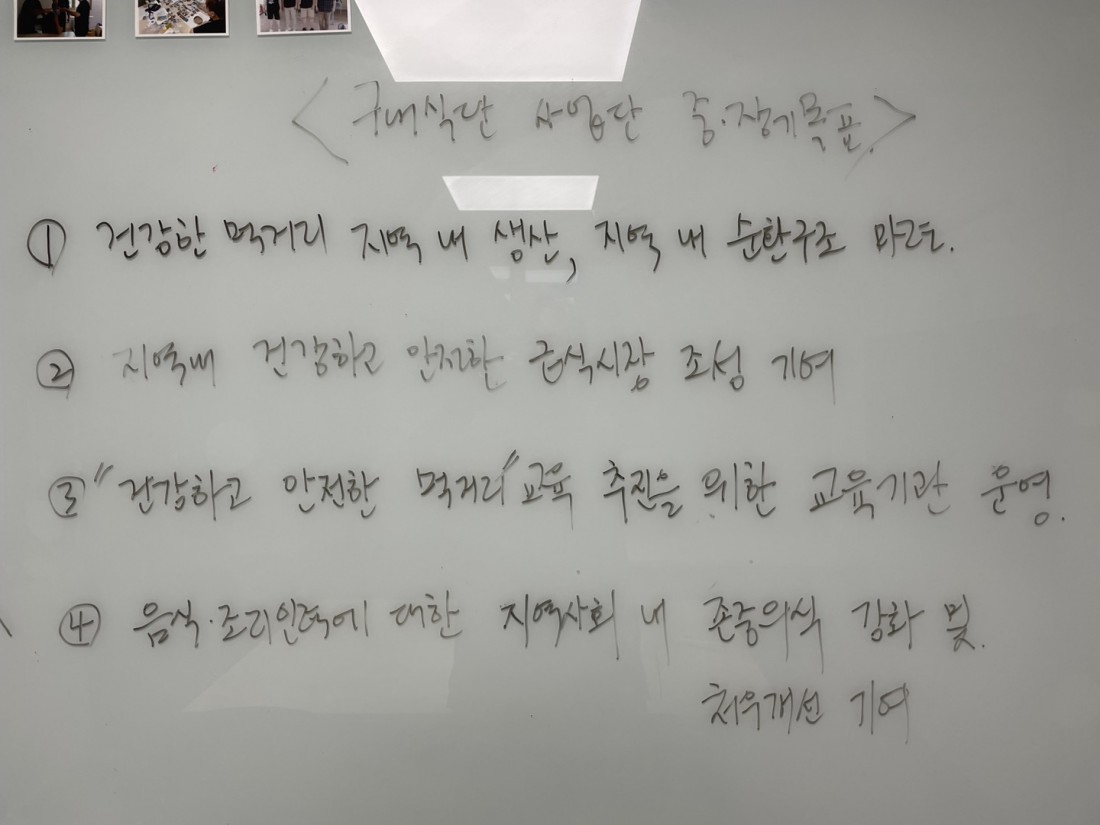 <구내식단 사업단 중·장기목표>
① 건강한 먹거리 지역 내 생산, 지역 내 순환구조 마련.
② 지역내 건강하고 안전한 급식시장 조성 기여
③ "건강하고 안전한 먹거리" 교육 추진을 위한 교육기관 운영.
④ 음식·조리인력에 대한 지역사회 내 존중의식 강화 및.
처우개선 기여